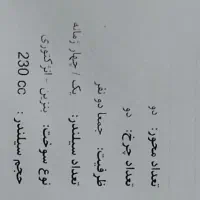 تعداد محور: دو
تعداد چرخ: دو
ظرفیت: جمعا دو نفر
تعداد سیلندر: یک / چهار زمانه
نوع سوخت: بنزین - انژکتوری
حجم سیلندر: 230 cc